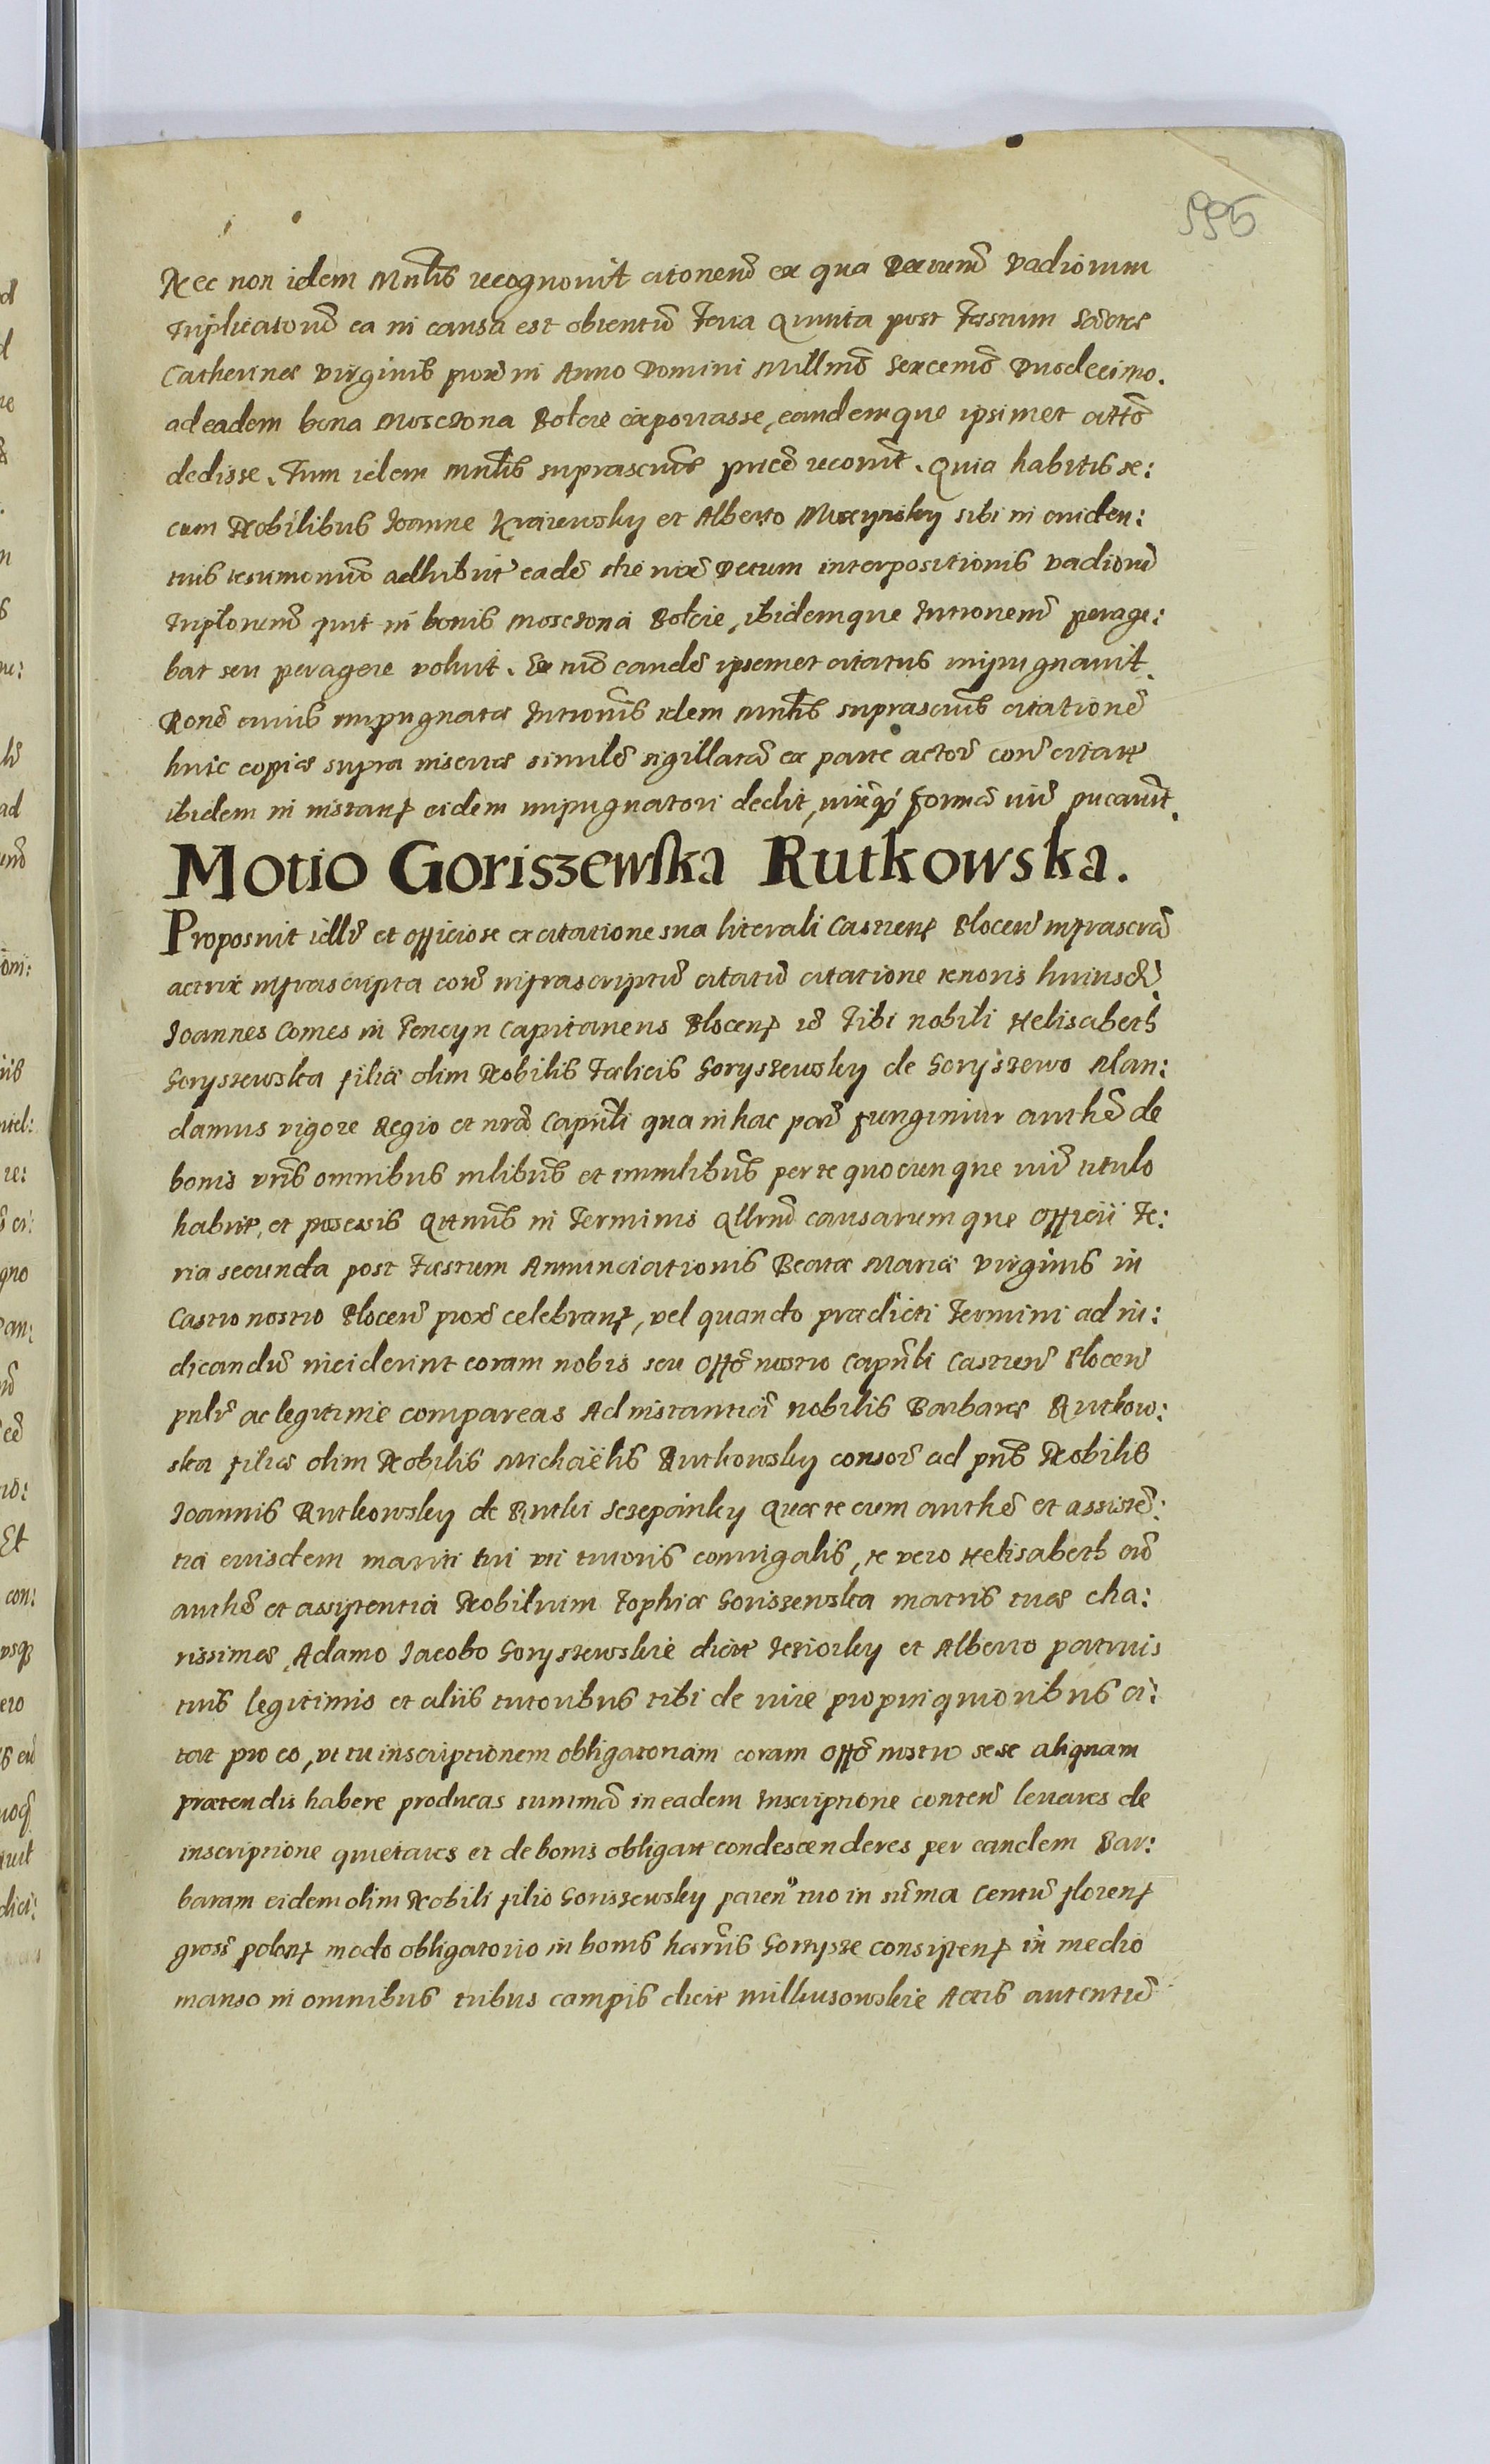 595
Nec non idem Mnlis recognovit citonem ex qua Decretum Vadiorum
Triplicatorum ea in causa est obtentum Feria Quinta post Festum Sanctæ
Catherinæ Virginis prox in Anno Domini Millmo Sexcemo Duodecimo.
ad eadem bona Mosczona Bolcie exportasse, eandemque ipsimet citto
dedisse. Tum idem Mnlis suprascrus pnce recovit. Quia habitis se:
cum Nobilibus Joanne Kraiewsky et Alberto sibi in eviden:
tius testimonium adhibit eade die Decum interpositionis vadiorum
Triplorum fuit in bonis Mosczona Bolcie, ibidemque Intronem perage:
bat seu peragere voluit. Et tum eande ipsemet citatus impugnavit.
Rone cuius impugnatæ Intronis idem Mnlis suprascrus citatione
huic copiæ supra insertæ simile sigillata ex parte actor con citat
ibidem in instan eidem impugnatori dedit, formam
Motio Goriszewska Rutkowska.
Proposuit et officiose ex citatione sua literali Castren Plocen infrascra
actrix infrascripta con infrascriptu citatu citatione tenoris huiusd
Joannes Comes in Tencyn Capitaneus Plocen Tibi nobili Helisabeth
Goryszewska filiæ olim Nobilis Fælicis Goryszewsky de Goryszewo Man:
damus vigore Regio et nra Capnli qua in hac par fungimur authe de
bonis vris omnibus mlibus et immlibus per te quocunque titulo
habit, et possessis Qtnus in Terminis Qllrum causarumque Officii Fe:
ria secunda post Fæstum Annunciationis Beatæ Mariæ Virginis in
Castro nostro Plocen prox celebran, vel quando prædicti Termini ad iu:
dicandu inciderint coram nobis seu Offo nostro Capnli Castren Plocen
pnlr ac legitime compareas Ad instantia nobilis Barbaræ Rutkow:
ska filiæ olim Nobilis Michaëlis Rutkowsky consor ad pns Nobilis
Joannis Rutkowsky de Rutki Sczepanky Quæ te cum authe et assiste:
tia eiusdem mariti sui uti tutoris coniugalis, te vero Helisabeth cum
authe et assistentia Nobilium Sophiæ Goriszewska matris tuæ cha:
rissimæ, Adamo Jacobo Goryszewskie dict Jeziorky et Alberto patruis
tuis legitimis et aliis tutoribus tibi de iure propinquioribus ci:
tat pro eo, ut tu inscriptionem obligatoriam coram Offo nostro sese aliquam
prætendis habere producas summa in eadem Inscriptione conten levares de
inscriptione quietares et de bonis obligat condescenderes per eandem Bar:
baram eidem olim Nobili filio Goriszewsky paren tuo in suma Centu floren
gross polon modo obligatorio in bonis hæriis Gorzysze consisten in medio
manso in omnibus tribus campis dict Milkusowskie Actis autentic